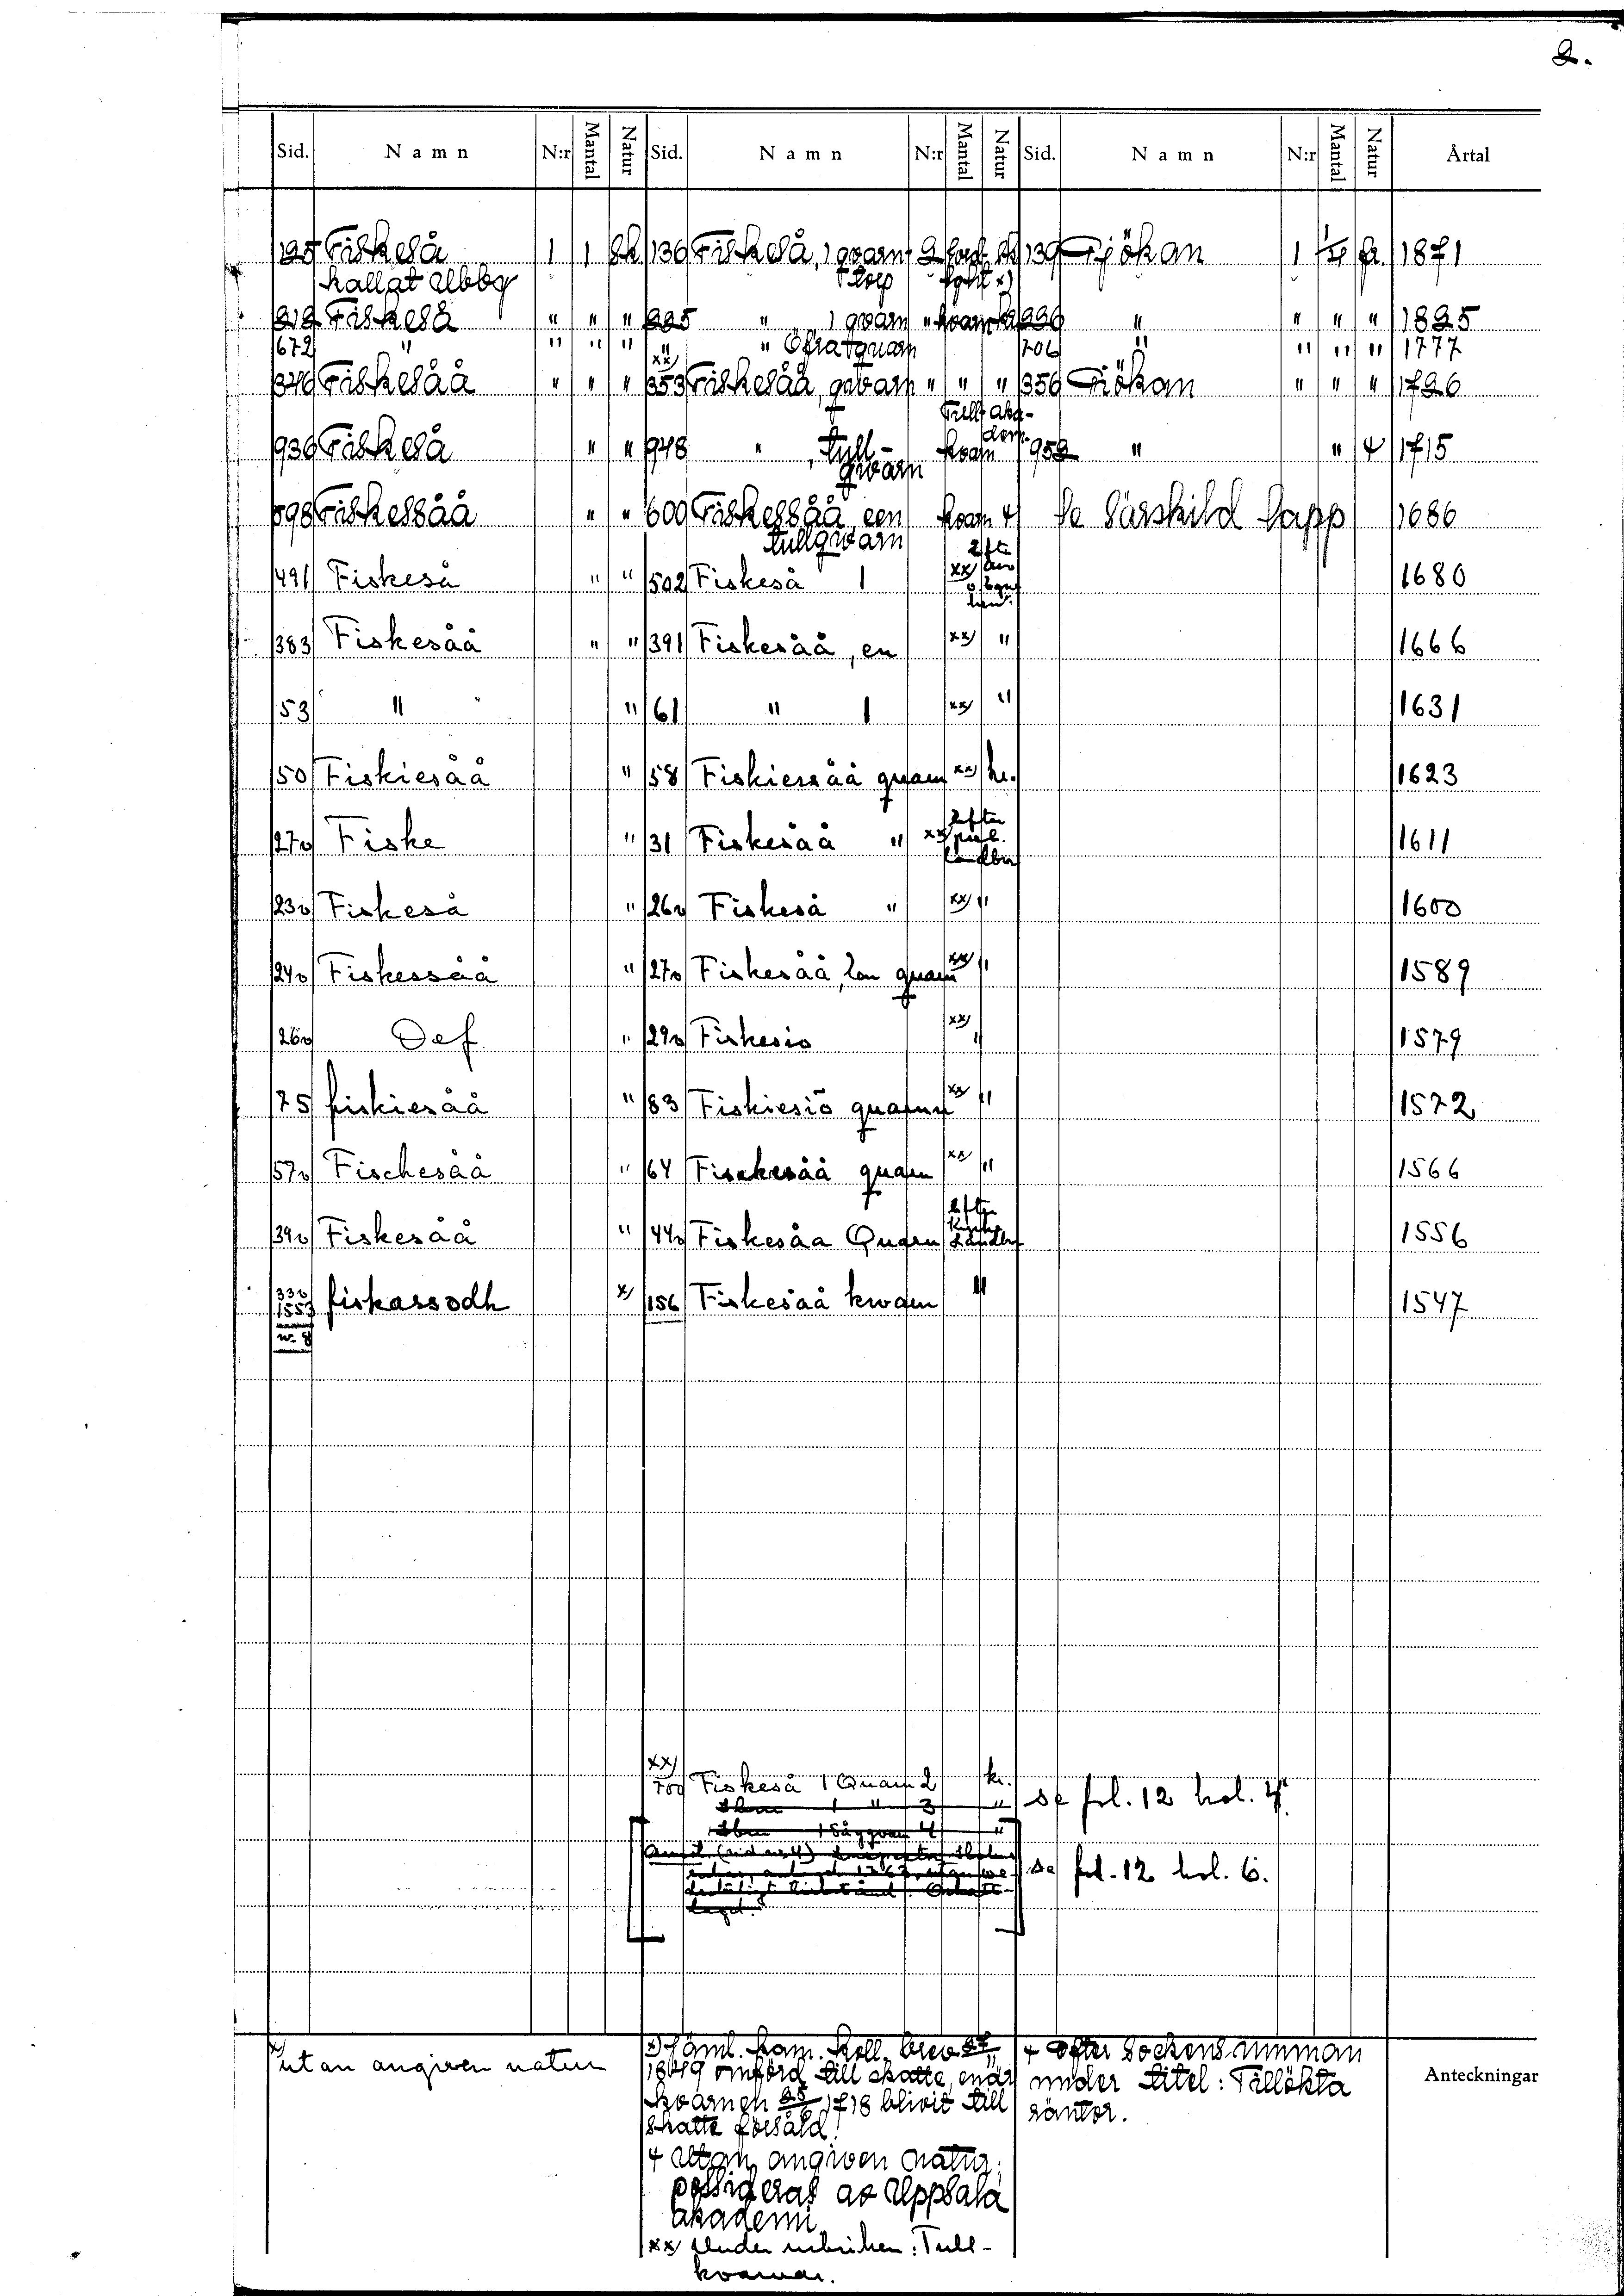 2.
Sid. Namn N:r Mantal Natur Sid. Namn N:r Mantal Natur Sid. Namn N:r Mantal Natur Årtal
125 Fiskeså 1 1 sk 136 Fiskeså, 1 qvarn 2 139 Gjökan 1 1/4 fr. 1871
kallat Ubby torp x)
212 Fiskeså " " " 225 " 1 qvarn " kvarn 226 " " " " 1825
672 " " " " " " Öfra qvarn 706 " " " " 1777
346 Fiskesåå " " " xx) 353 Fiskesåå, qvarn " " " 356 Giökan " " " 1726
Tull- aka-
936 Fiskeså " " 948 " , tull- kvarn dem. 952 " " 4 1715
qwarn
598 Fiskessåå " " 600 Fiskessåå, een kvarn 4 se särskild lapp 1686
tullqwarn
491 Fiskeså " " 502 Fiskeså 1 xx) 1680
383 Fiskesåå " " 391 Fiskesåå, en xx) " 1666
53 " " 61 " 1 xx) " 1631
50 Fiskiesåå " 58 Fiskiessåå quarn xx) kr. 1623
27v Fiske " 31 Fiskesåå " xx) 1611
23v Fiskeså " 26v Fiskeså " xx) " 1600
24v Fiskessåå " 27v Fiskesåå, quarn xx) " 1589
26v Def " 29v Fiskesio xx) " 1579
75 fiskiesåå " 83 Fiskiesiö quarnn xx) " 1572
57v Fischesåå " 64 Fischesåå quarn xx) " 1566
39v Fiskesåå " 44v Fiskesåa Quarn 1556
33v
1553 fiskassodh x) 156 Fiskesåå kwarn " 1547
nr 8
xx)
700 Fiskeså 1 Quarn 2 kr. se fol. 12 kol. 4.
1 " 3 "
1 Sågqvarn 4 "
se fol. 12 kol. 6.
x) utan angiven natur
x) Jäml. kam. koll. brev 27/11
1849 omförd till skatte, enär
kvarnen 25/6 1718 blivit till
skatte försåld.
4 Utan angiven natur;
possideras av Uppsala
akademi.
xx) Under rubriken: Tull-
kvarnar.
4 Efter sockens summan
under titel: Tillökta
räntor.
Anteckningar